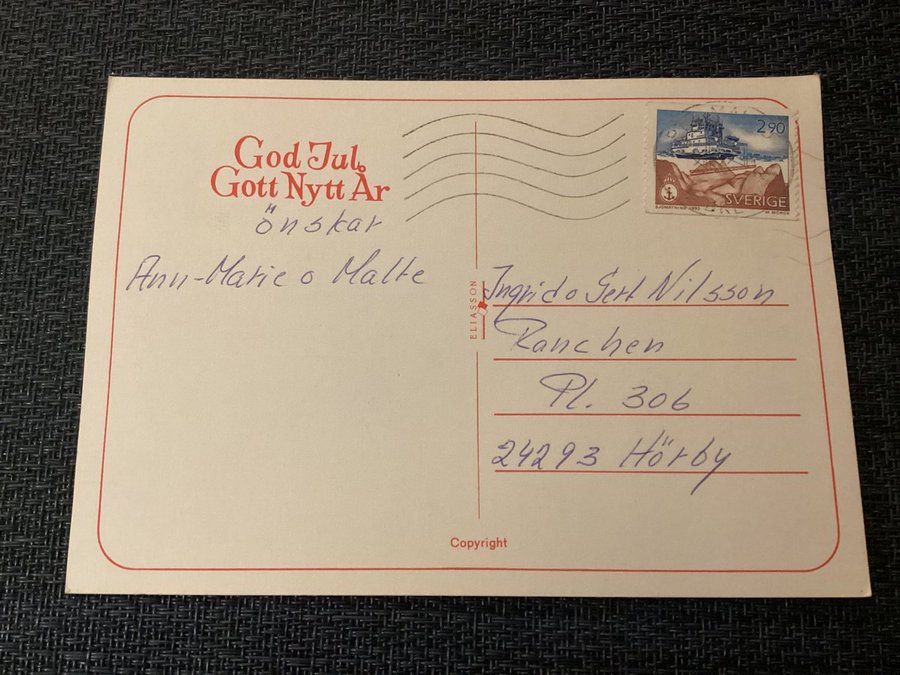 God Jul
Gott Nytt År
önskar
Ann-Marie o Malte
ELIASSON
2.90
SVERIGE
SJÖMÄTNING 1992
Ingrid o Gert Nilsson
Ranchen
Pl. 306
24293 Hörby
Copyright